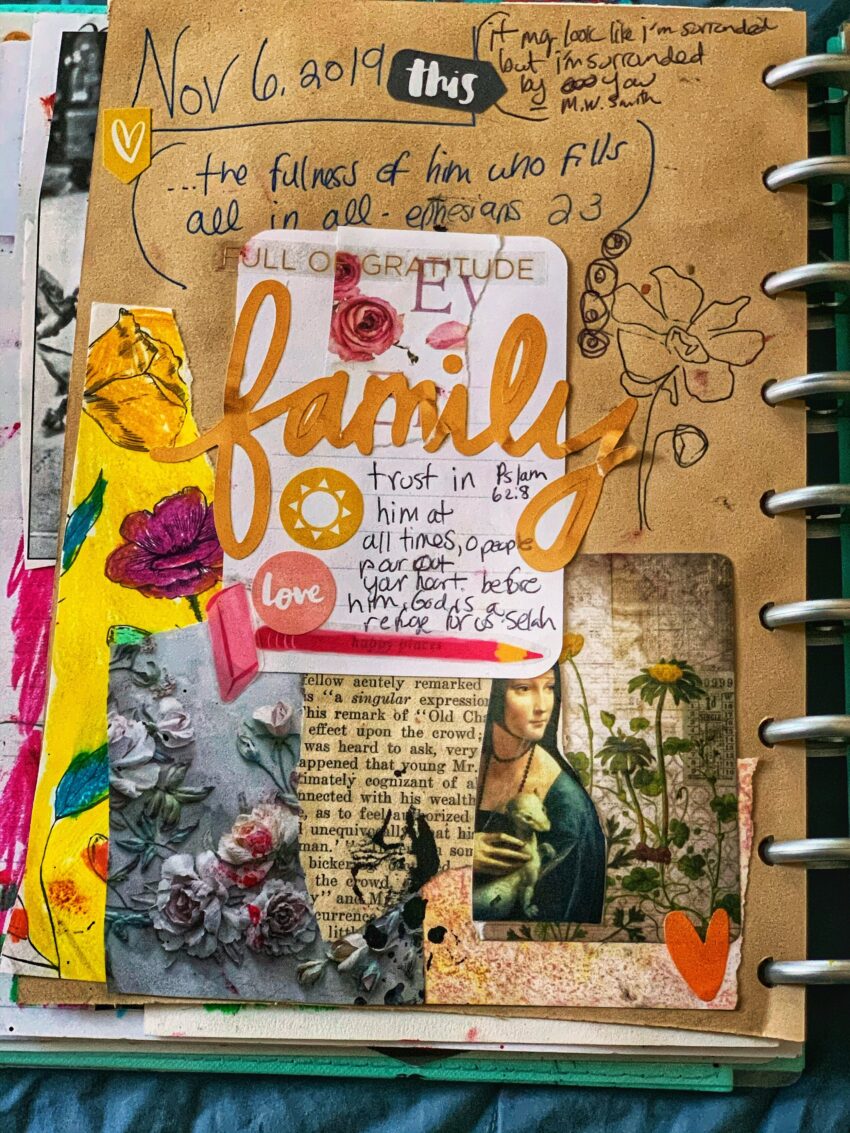 Nov 6, 2019
this
it may look like i'm surranded
but i'm surranded
by you
M.W. Smith
...the fullness of him who fills
all in all - ephesians 23
FULL OF GRATITUDE
EV
family
trust in Pslam
62:8
him at
all times, o people
pour out
your heart before
him, God is a
refuge for us. Selah
love
happy places
fellow acutely remarked
"a singular expression
his remark of "Old Ch
effect upon the crowd;
was heard to ask, very
appened that young Mr.
timately cognizant of a
nnected with his wealth
, as to feel authorized
unequivocally that hi
man.'" son
bicker
the crowd,
y" and M
currence
littl